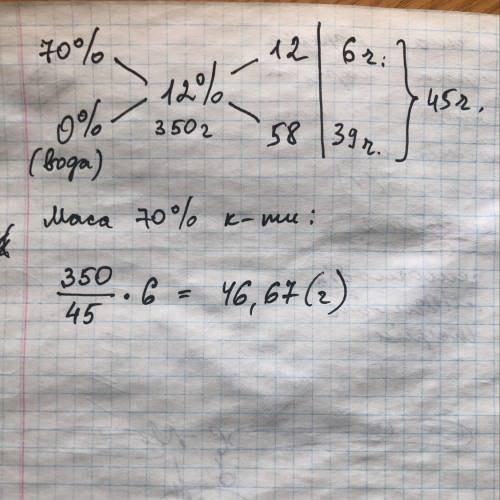 70% 12 6 ч.
12% 45 ч.
0% 350 г 58 39 ч.
(вода)
Маса 70% к-ти:
350/45 · 6 = 46,67 (г)